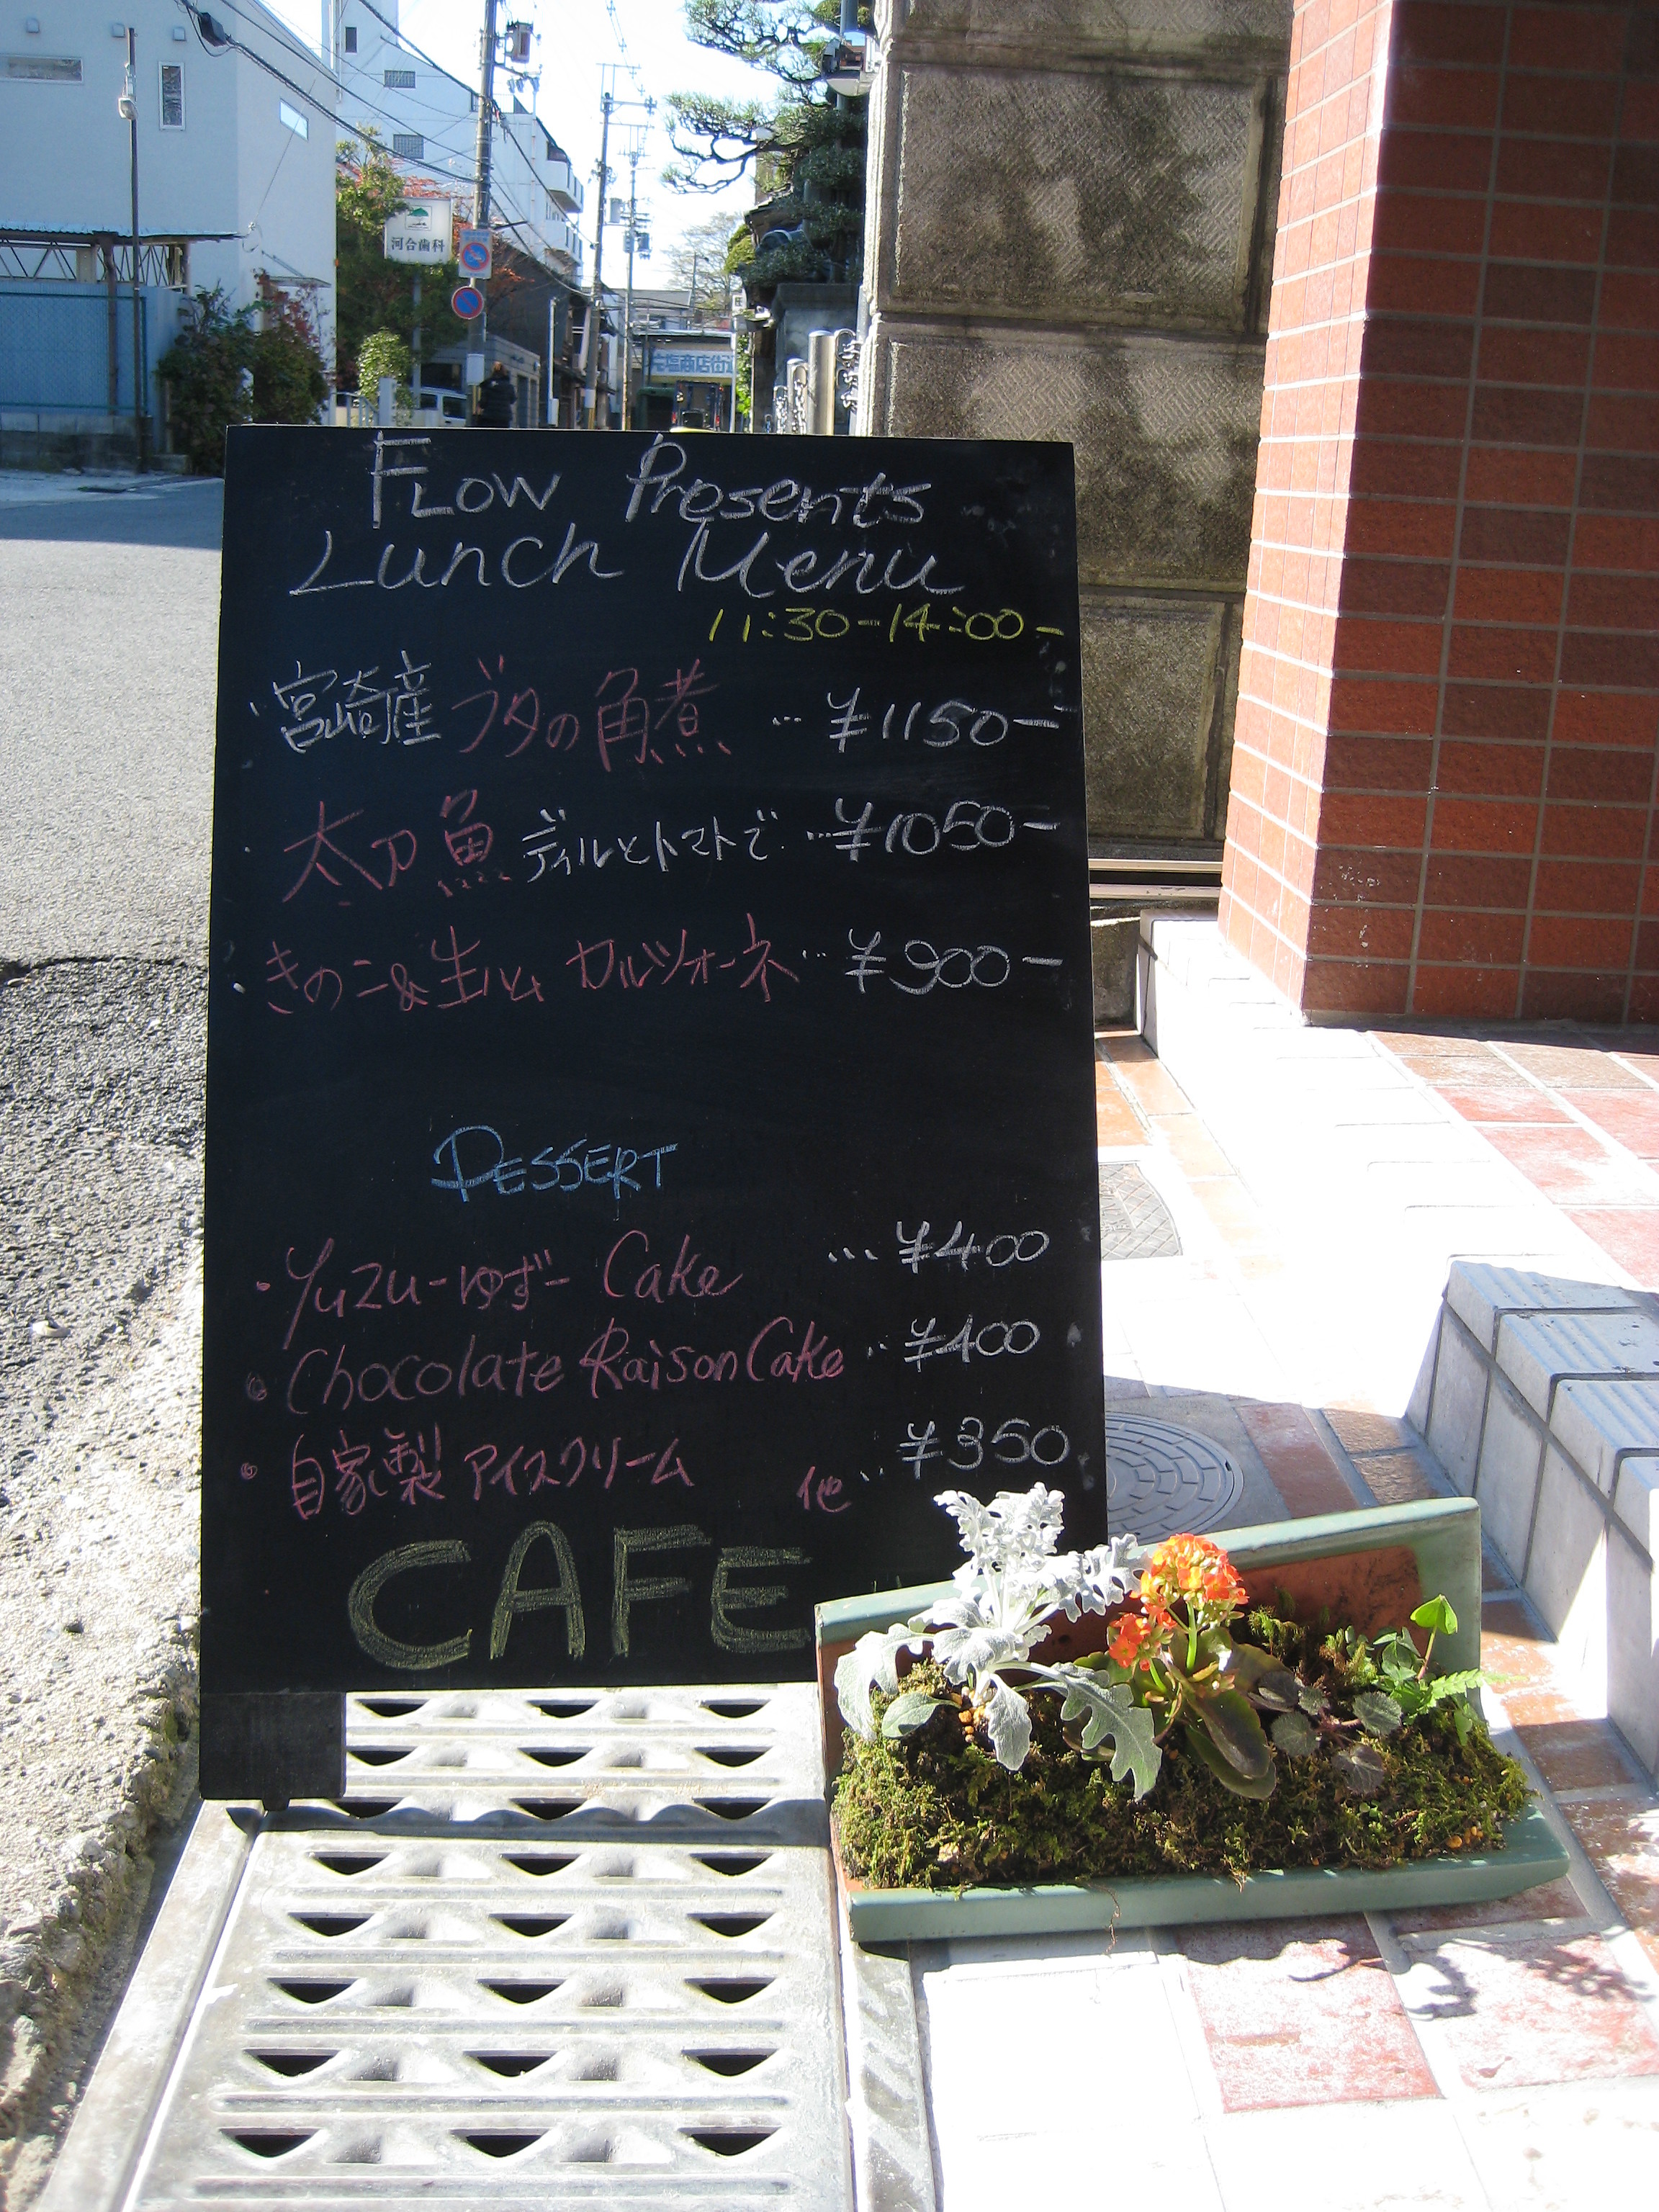 河合歯科
元塩商店街
FLOW Presents
Lunch Menu
11:30-14:00-
・宮崎産 ブタの角煮 … ¥1150-
・太刀魚 ディルとトマトで … ¥1050-
・きのこ&生ハム カルツォーネ … ¥900-
DESSERT
・Yuzu-ゆず- Cake … ¥400
・Chocolate Raison Cake … ¥400
・自家製 アイスクリーム 他 … ¥350
CAFE